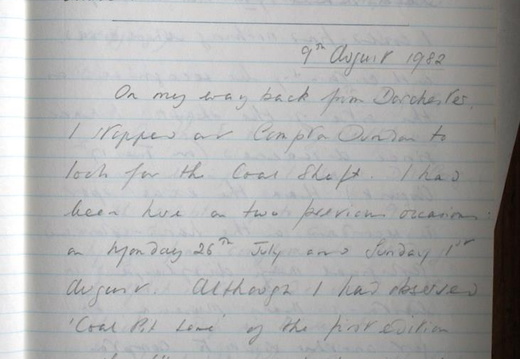 9th August 1982
On my way back from Dorchester,
I stopped at Compton Dundon to
look for the Coal Shaft. I had
been here on two previous occasions:
on Monday 26th July and Sunday 1st
August. Although I had observed
'Coal Pit Lane' of the first edition